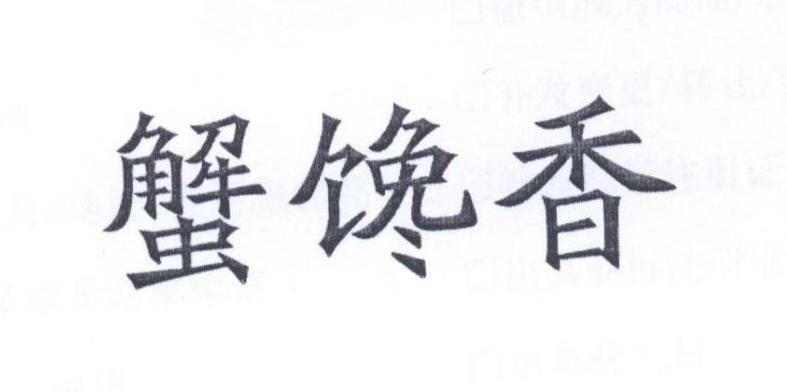 蟹馋香